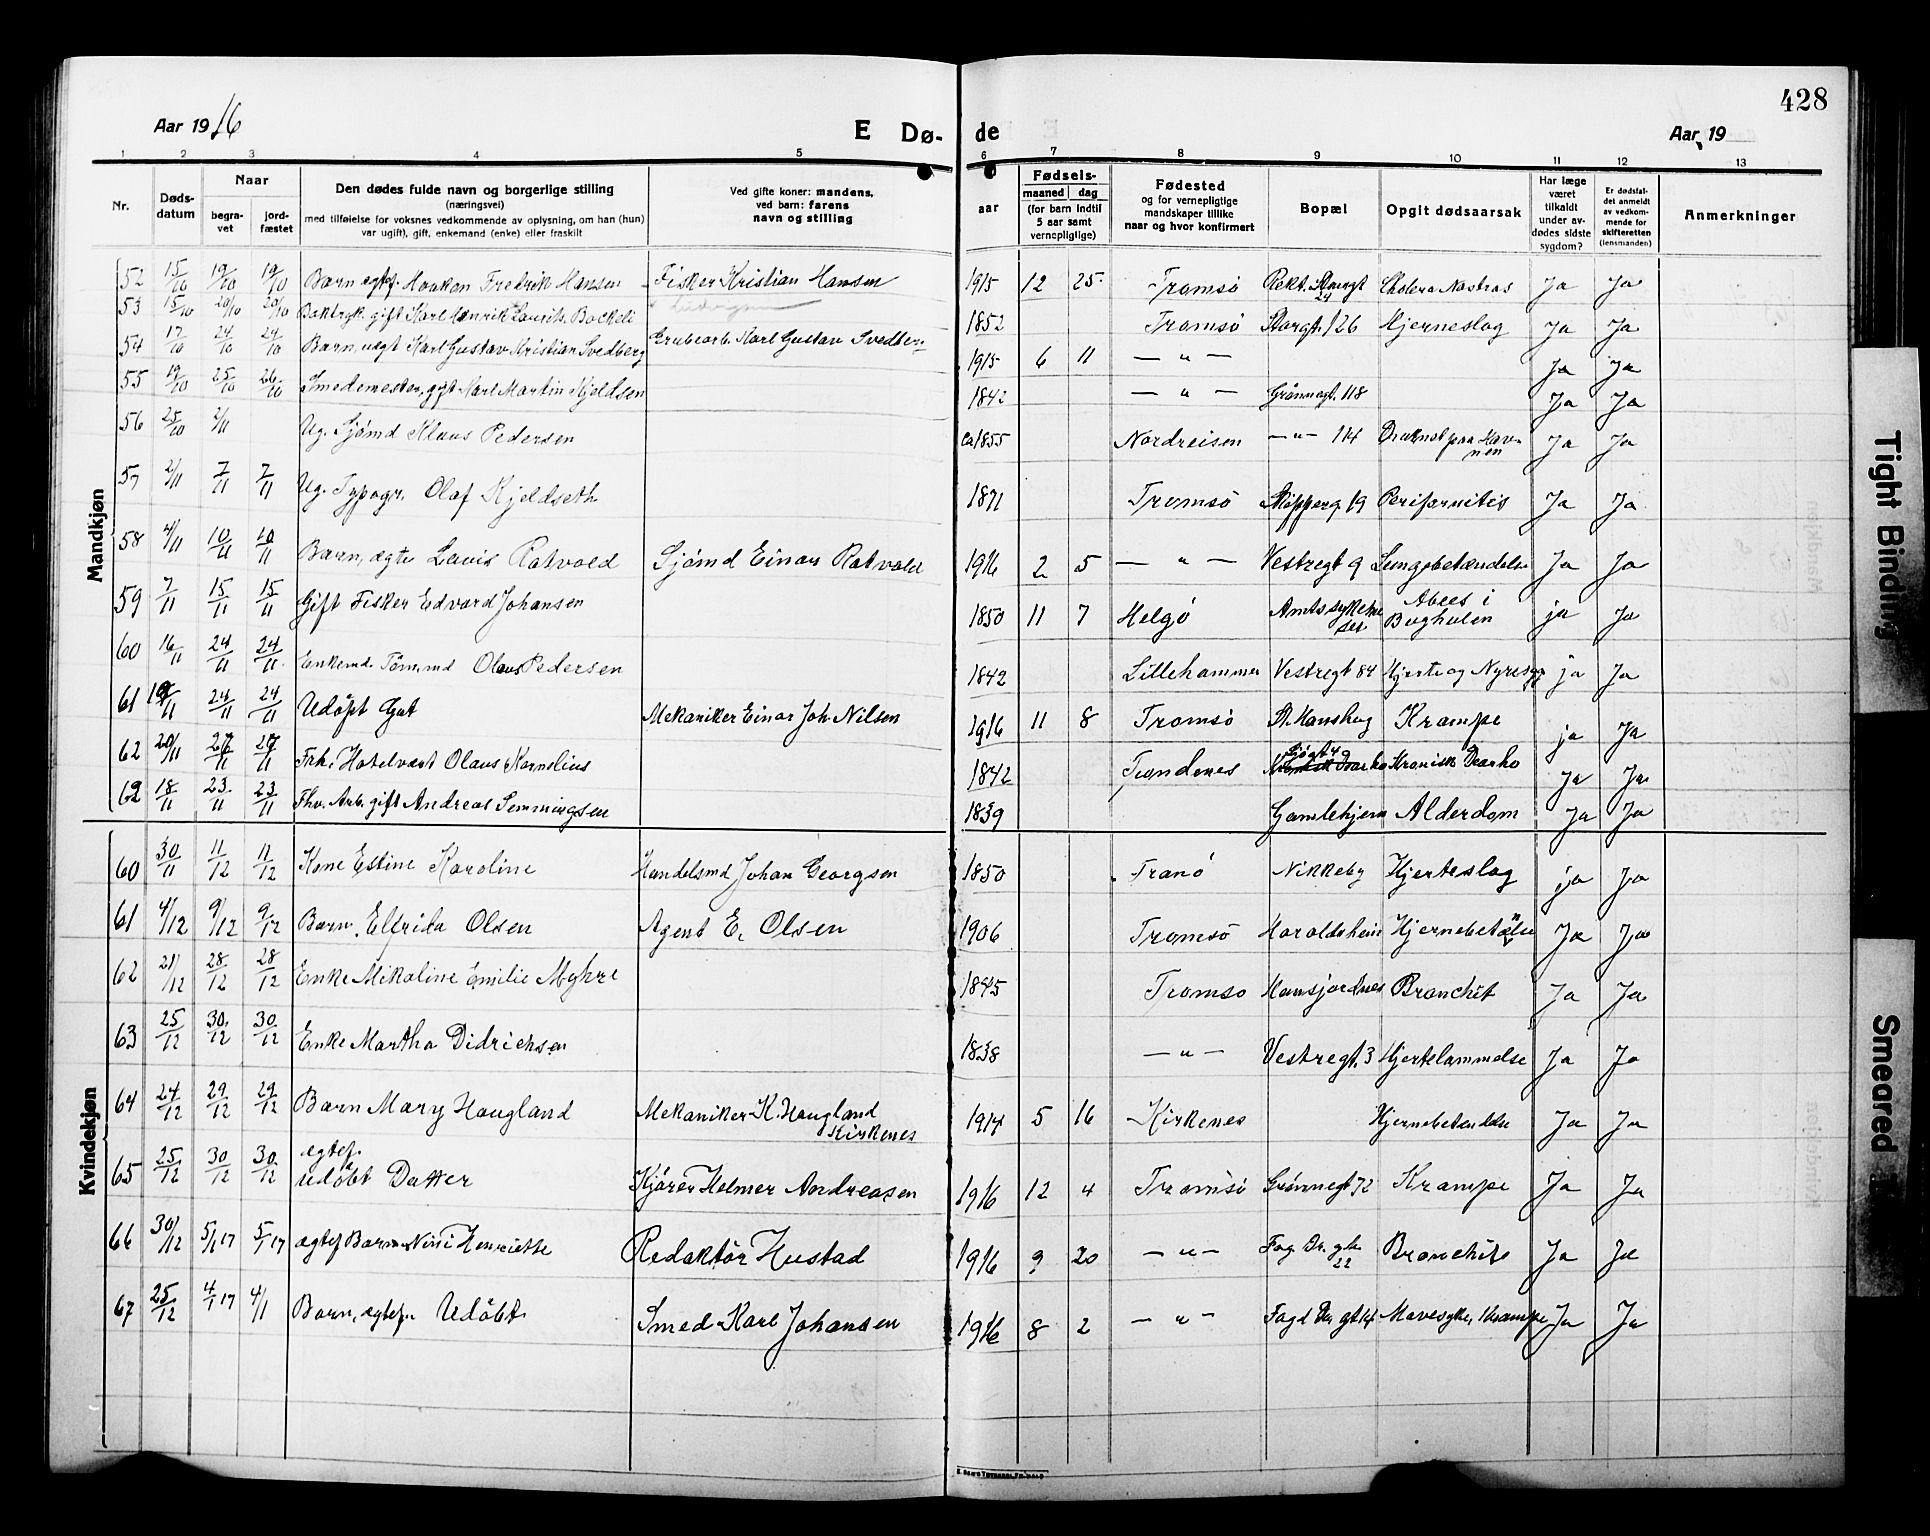 428
Aar 1916
E Dø- de
Aar 19
1 2 3 4 5 6 7 8 9 10 11 12 13
Nr.
Døds-
datum
Naar
begra-
vet
jord-
fæstet
Den dødes fulde navn og borgerlige stilling
(næringsvei)
med tilføielse for voksnes vedkommende av oplysning, om han (hun)
var ugift), gift, enkemand (enke) eller fraskilt
Ved gifte koner: mandens,
ved barn: farens
navn og stilling
Fødsels-
aar
maaned dag
(for barn indtil
5 aar samt
vernepligtige)
Fødested
og for vernepligtige
mandskaper tillike
naar og hvor konfirmert
Bopæl
Opgit dødsaarsak
Har læge
været
tilkaldt
under av-
dødes sidste
sygdom?
Er dødsfal-
det anmeldt
av vedkom-
mende for
skifteretten
(lensmanden)
Anmerkninger
Mandkjøn
52 15/10 19/10 19/10 Barn ægtef. Haakon Fredrik Hansen Fisker Kristian Hansen 1915 12 25 Tromsø Rekt. Steengt 24 Cholera Nostras Ja Ja
53 15/10 20/10 20/10 Boktryk. gift Karl Henrik Laurits Bockeli 1852 Tromsø Storgt. 126 Hjerneslag Ja Ja
54 17/10 24/10 24/10 Barn, uægt Karl Gustav Kristian Svedberg Grubearb. Karl Gustav Svedberg 1915 6 11 — " — Ja Ja
55 19/10 25/10 26/10 Smedemester, gift Karl Martin Kjeldsen 1842 — " — Grønnegt. 118 Ja Ja
56 25/10 2/11 Ug. Sjømd Klaus Pedersen ca 1855 Nordreisen — " — 114 Druknet paa Havnen Ja Ja
57 2/11 7/11 7/11 Ug. Typogr. Olaf Kjeldseth 1891 Tromsø Skipperg. 19 Ja Ja
58 4/11 10/11 10/11 Barn, ægte Lavis Rotvold Sjømd Einar Rotvold 1916 2 5 — " — Vestregt 9 Lungebetændelse Ja Ja
59 7/11 15/11 15/11 Gift Fisker Edvard Johansen 1850 11 7 Helgø Amtssykehuset Abces i Bughulen ja Ja
60 16/11 24/11 24/11 Enkemd. Tømmd Olaus Pedersen 1842 Lillehammer Vestregt 84 Hjerte og Nyresyg ja Ja
61 19/11 24/11 24/11 Udøpt Gut Mekaniker Einar Joh. Nilsen 1916 11 8 Tromsø St. Hanshug Krampe ja Ja
62 20/11 27/11 27/11 Frh. Hotelvært Olaus Kornelius 1842 Trondenes Sjøgt 4 Kronisk Diarho Ja Ja
62 18/11 23/11 23/11 Fhv. Arb. gift Andreas Semmingsen 1839 Gamlehjem Alderdom Ja Ja
Kvindekjøn
60 30/11 11/12 11/12 Kone Estine Karoline Handelsmd Johan Georgsen 1850 Tranø Nikkeby Hjerteslag ja Ja
61 4/12 9/12 9/12 Barn, Elfrida Olsen Agent E. Olsen 1906 Tromsø Haraldsheim Hjernebetændelse Ja Ja
62 21/12 28/12 28/12 Enke Mikoline Emilie Myhre 1845 Tromsø Hansjordnes Bronchit Ja Ja
63 25/12 30/12 30/12 Enke Martha Didrichsen 1838 — " — Vestregt. 3 Hjertelammelse Ja Ja
64 24/12 29/12 29/12 Barn Mary Haugland Mekaniker K. Haugland Kirkenes 1914 5 16 Kirkenes Hjernebetændelse Ja Ja
65 25/12 30/12 30/12 ægtef. udøbt Datter Kjører Helmer Andreasen 1916 12 4 Tromsø Grønnegt 72 Krampe Ja Ja
66 30/12 5/1 17 5/1 17 ægtef Barn Nini Henriette Redaktør Hustad 1916 9 20 — " — Fog. Dr. gt. 22 Bronchit Ja Ja
67 25/12 4/1 17 4/1 Barn, ægtef. Udøbt Smed Karl Johansen 1916 8 2 — " — Fogd Dr. gt 14 Mavesyke, Krampe Ja Ja
Tight Binding
Smeared